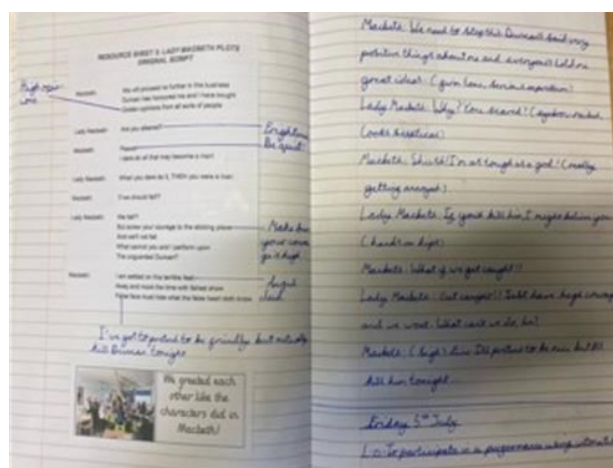 RESOURCE SHEET 3: LADY MACBETH PLOTS
ORIGINAL SCRIPT
Macbeth: We will proceed no further in this business
Duncan has honoured me and I have bought
Golden opinions from all sorts of people
Lady Macbeth: Are you afraid?
Be quiet!
Macbeth: Peace!
I dare do all that may become a man!
Lady Macbeth: When you dare do it, THEN you were a man
Macbeth: If we should fail?
Lady Macbeth: We fail?
But screw your courage to the sticking place
And we'll not fail
What cannot you and I perform upon
The unguarded Duncan?
Make sure
your coura
ge is high
Macbeth: I am settled on this terrible feat
Away and mock the time with fairest show
False face must hide what the false heart doth know
I've got to pretend to be friendly but actually
kill Duncan tonight
We greeted each
other like the
characters did in
Macbeth!
Macbeth: We need to stop this. Duncan's said very
positive things about me and everyone's told me
great ideas. (
Lady Macbeth: Why? You scared? (eyebrow raised,
Macbeth: Shush! I'm as tough as a god! (really
getting annoyed)
Lady Macbeth: If you'd kill him, I might believe you
(hands on hips)
Macbeth: What if we get caught!?
Lady Macbeth: Get caught!? Just have high courage
and we wont. What can't we do, ha!
Macbeth: (Sigh) Fine I'll pretend to be nice but I'll
kill him tonight
Friday 5th July
L.O: To participate in a performance using